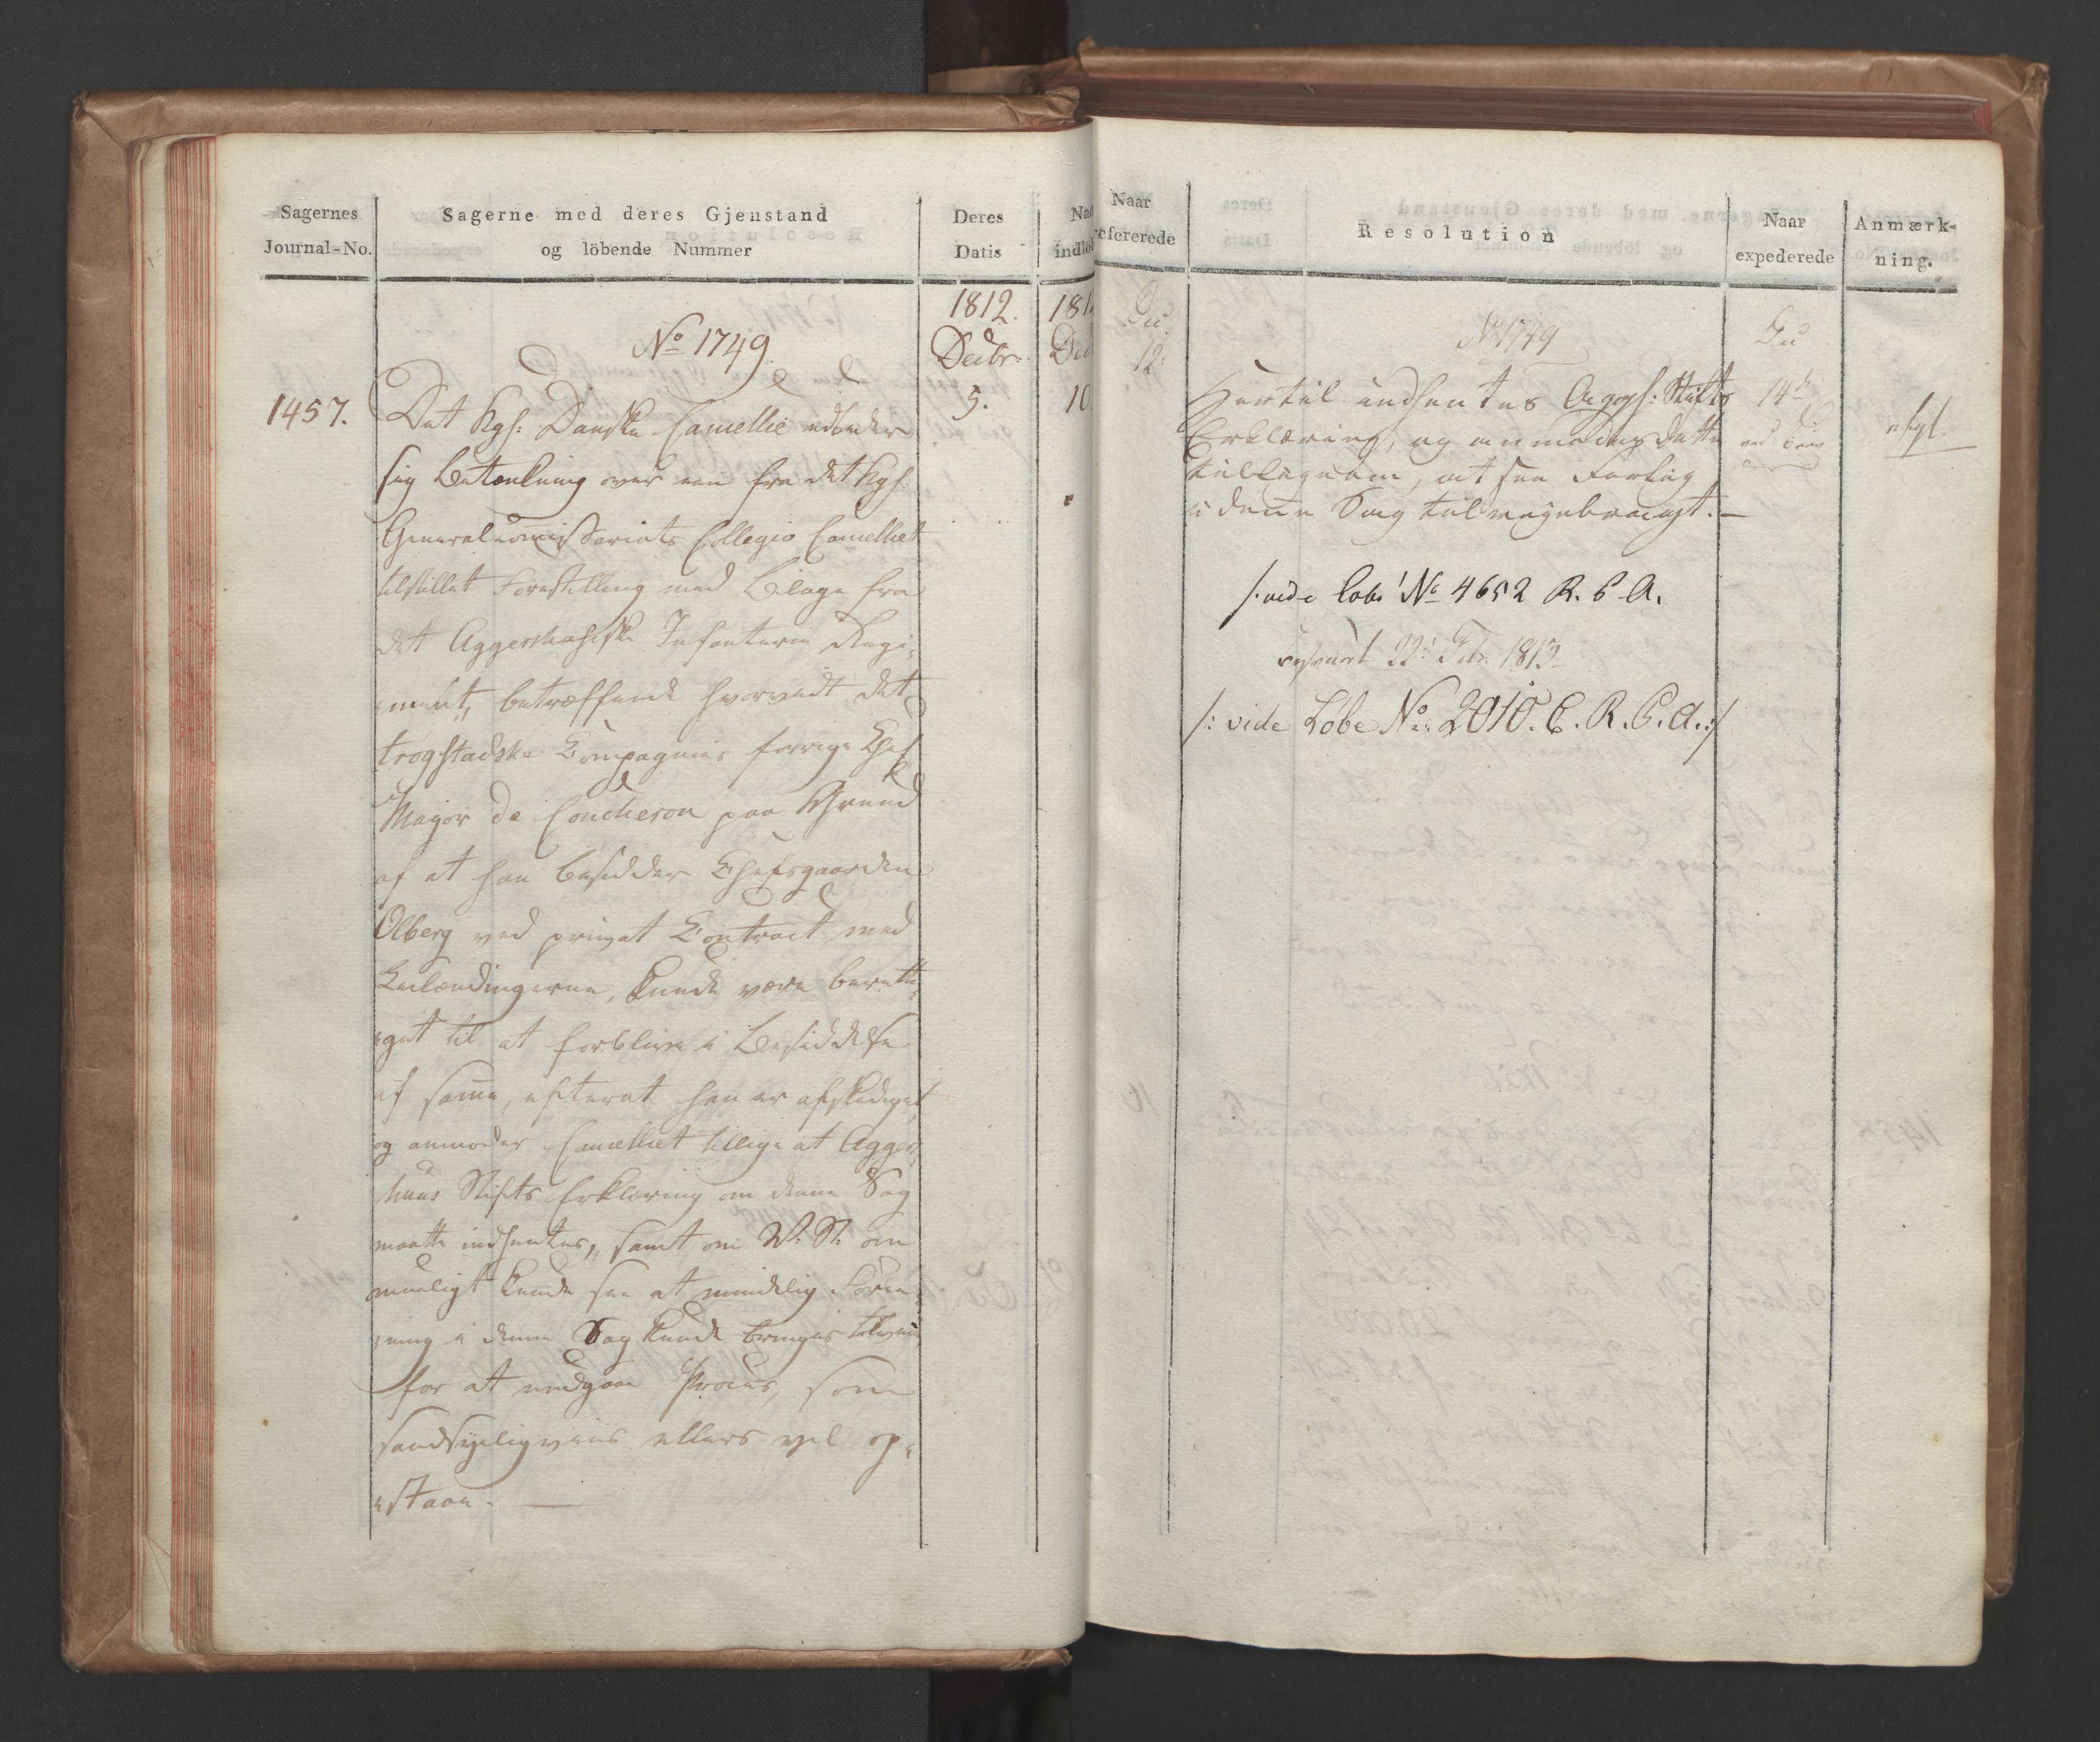 Sagernes
Journal-No.
Sagerne med deres Gjenstand
og löbende Nummer
Deres
Datis
Naa
indlöb
1812.
Decbr:
5.
181
Dec
10.
No 1749.
1457.
Det Kgl: Danske Cancellie udbeder
sig Betænkning over een fra det Kgl.
Generalcomissariats Collegio Cancelliet
tilstillet Forestilling med Bilage fra
det Aggershusiske Infanterie Regi-
ment, betræffende hvorvidt det
trogstadske Compagnies forrige Chef
Major de Coucheron paa Grund
af at han besidder Chefsgaarden
Olberg ved privat Contract med
Leilændingerne, kunde være beretti-
get til at forblive i Besiddelse
af same, efterat han er afskediget,
og anmoder Cancelliet tillige at Agger-
huus Stifts Erklæring om denne Sag
maatte indhentes, samt om V. St: om
mueligt kunde see at mindelig Fore-
ning i denne Sag kunde bringes tilveie
for at undgaae Proces, som
sandsynligviis ellers vil op-
staae. —
Naar
refererede
Resolution
Naar
expederede
Anmærk-
ning.
Du
12:
No 1749
Hertil indhentes Aggersh: Stifts
Erklæring, og anmodes dette
tilligemed, at see Forlig
i denne Sag tilveyebragt. —
Du
14de
ved Brev
afgl.
/: vide Løbe No 4652 R. C. A.
resolveret 22d Febr 1813
/: vide Løbe No. 2010. C. R. C. A. :/